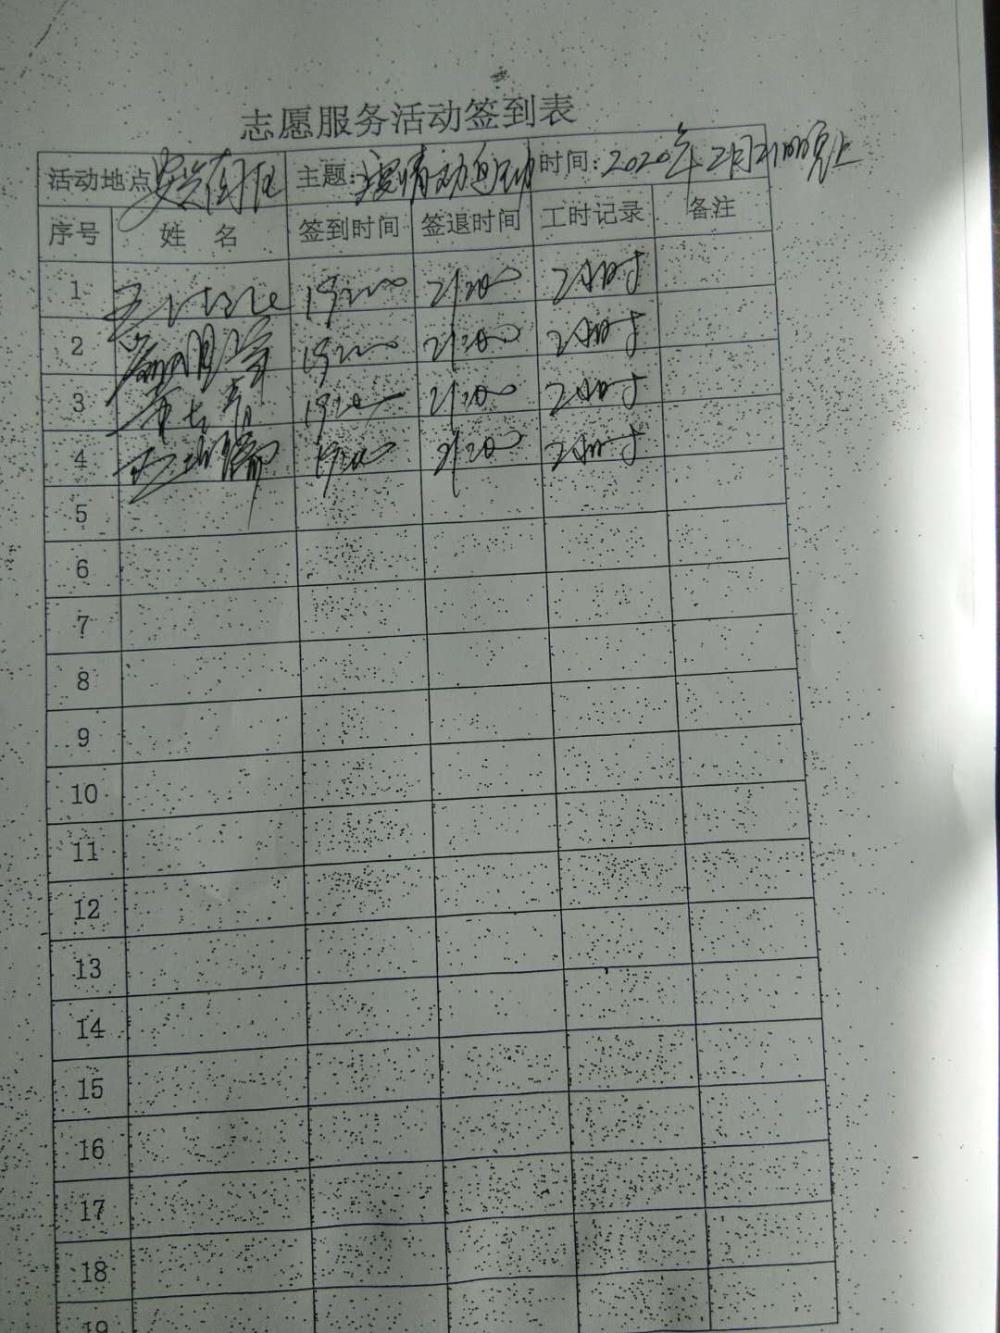 志愿服务活动签到表
活动地点 主题: 疫情 时间: 2020年2月21日晚上
序号 姓名 签到时间 签退时间 工时记录 备注
1 19:00 21:00 2小时
2 19:00 21:00 2小时
3 19:00 21:00 2小时
4 19:00 21:00 2小时
5
6
7
8
9
10
11
12
13
14
15
16
17
18
19